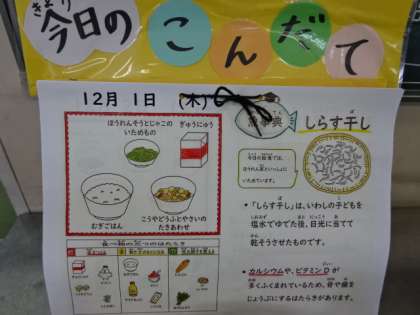 きょう
今日の こんだて
12月 1日 (木)
ほうれんそうとじゃこの
いためもの
ぎゅうにゅう
むぎごはん
こうやどうふとやさいの
たきあわせ
しらす干し
今日の給食では、
ほうれん草といっしょに
いためています。
・「しらす干し」は、いわしの子どもを
塩水でゆでた後、日光に当てて
乾そうさせたものです。
・カルシウムや、ビタミンDが
多くふくまれているため、骨や歯を
じょうぶにするはたらきがあります。
食べ物の三つのはたらき